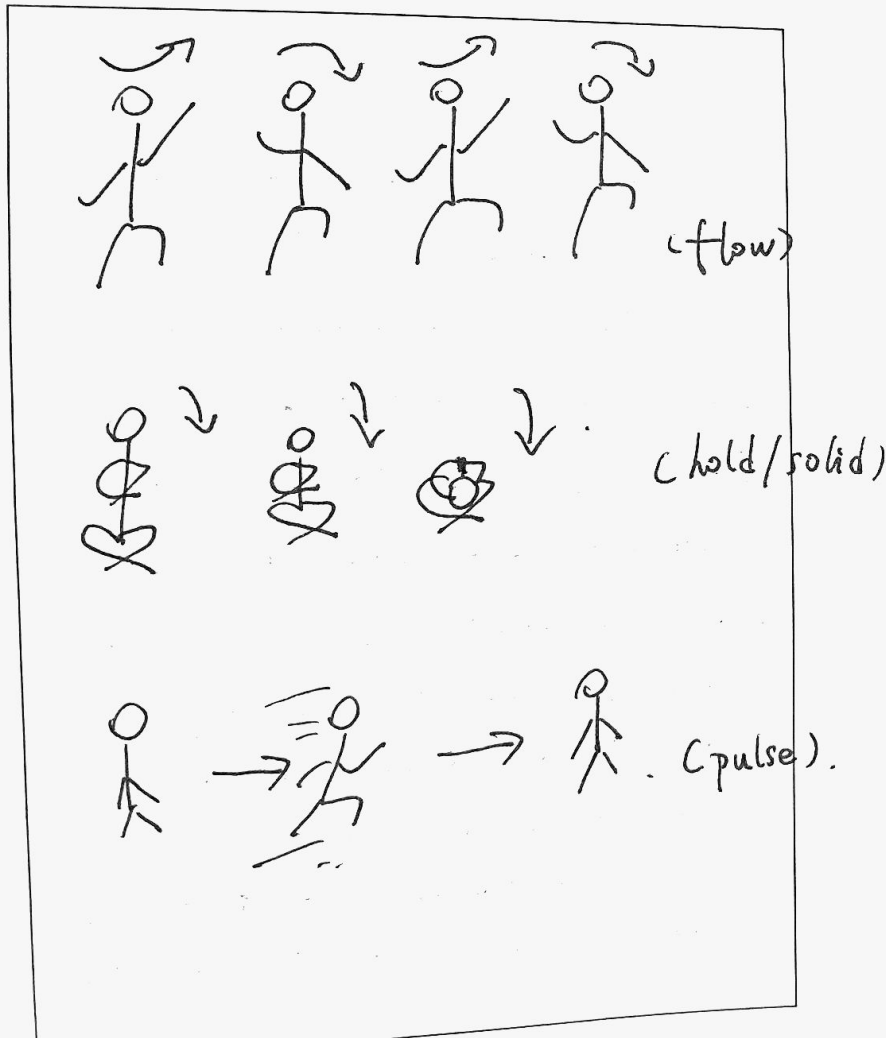 (flow)
(hold/solid)
(pulse).